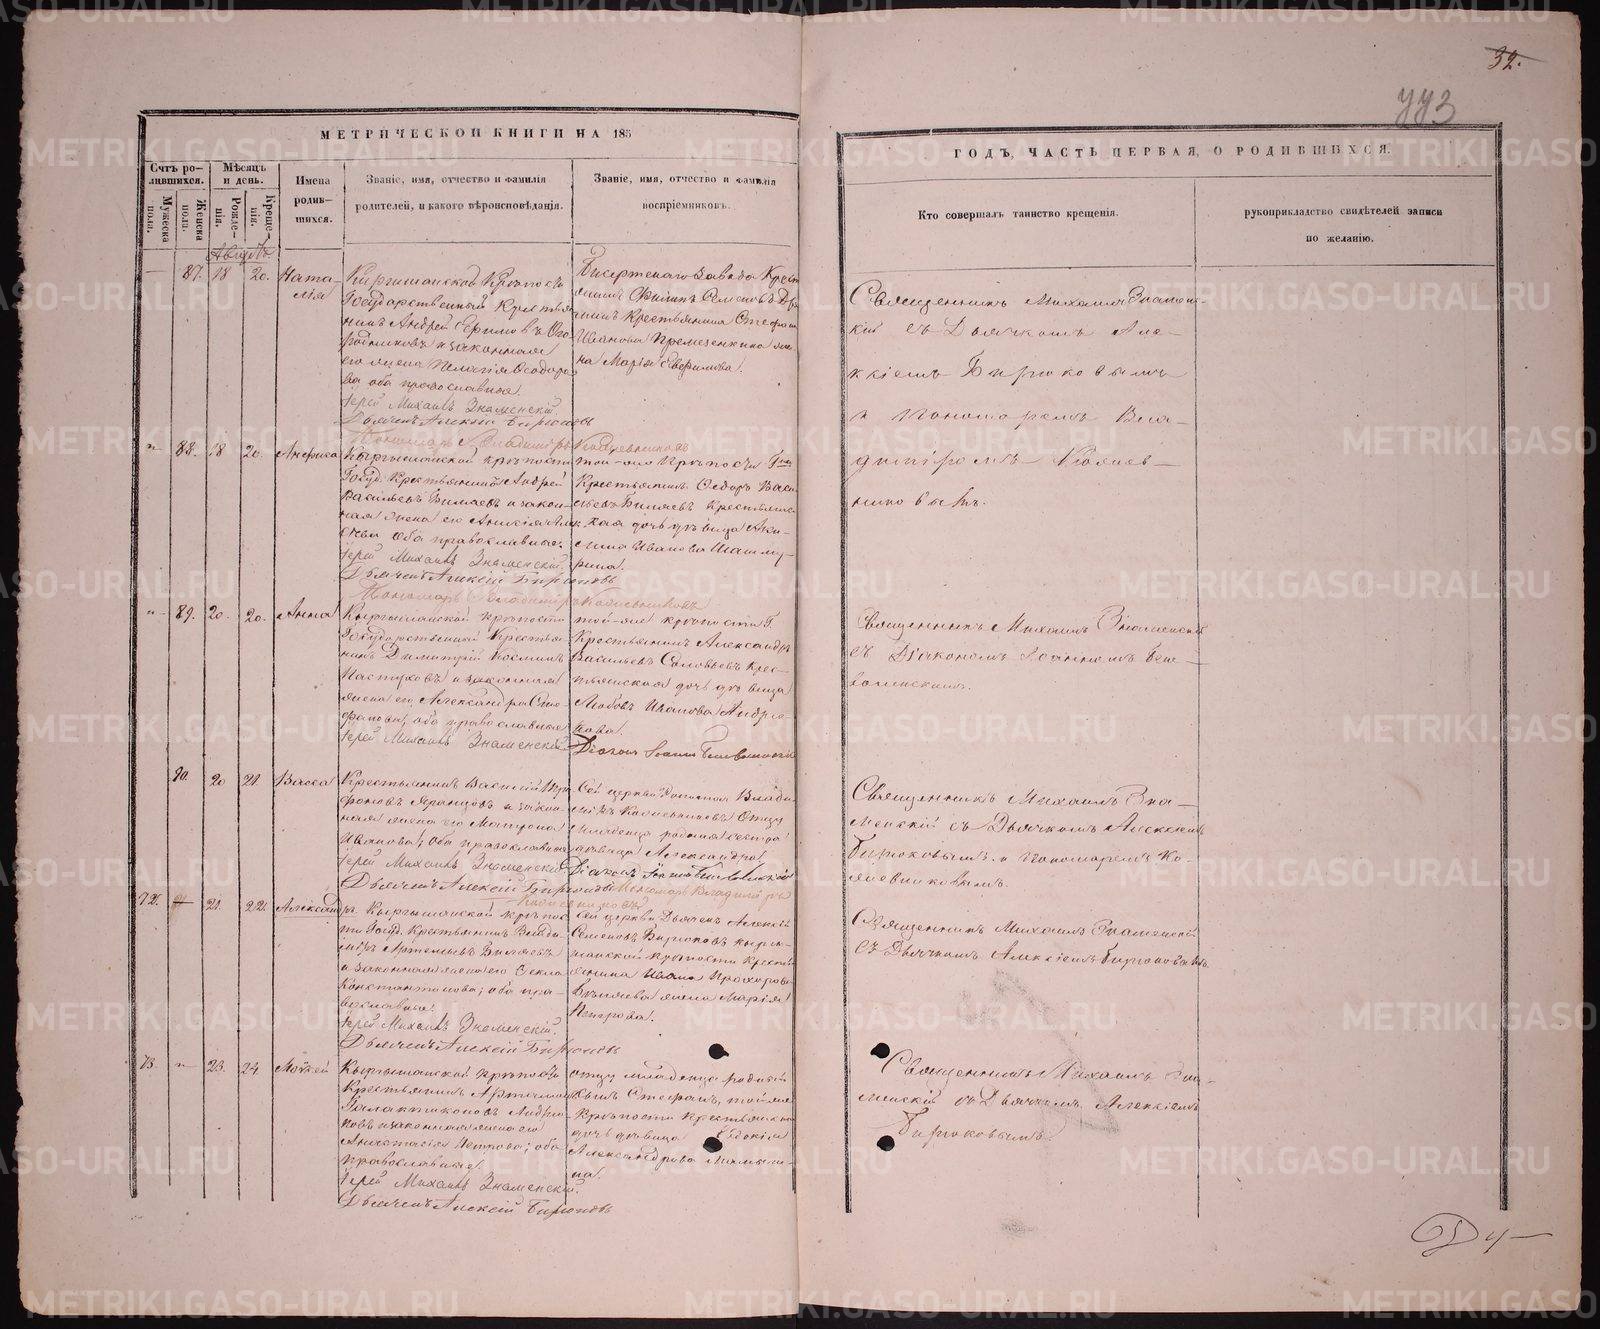 32.
443
МЕТРИЧЕСКОЙ КНИГИ НА 185
ГОДЪ, ЧАСТЬ ПЕРВАЯ, О РОДИВШИХСЯ.
Счтъ ро-
лившихся.
Мужеска
полв.
Женска
полв.
Мѣсяцъ
и день.
Рожде-
нія.
Креще-
нія.
Имена
родив-
шихся.
Званіе, имя, отчество и фамилія
родителей, и какого вѣроисповѣданія.
Званіе, имя, отчество и фамилія
воспріемниковъ.
Кто совершалъ таинство крещенія.
рукоприкладство свидѣтелей записи
по желанію.
Августъ
87. 18 20. Ната-
лія
Киргишанской Крѣпости
Государственный Крестья
нинъ Андрей Ефимовъ Ого
родниковъ и законная
его жена Пелагія Ѳеодоро
ва оба православные.
Іерей Михаилъ Знаменскій
Дьячекъ Алексій Бирюковъ
Пономарь Владиміръ Кожевниковъ
Бисертскаго завода Крест
янинъ Филипъ Семеновъ
Крестьянина Стефана
Иванова жена
Марія Ефимова.
Священникъ Михаилъ Знамен-
кій съ Дьячкомъ Але-
ксіемъ Бирюковымъ
и Пономаремъ Вла-
диміромъ Кожев-
никовымъ.
88. 18 20. Анфиса
Кыргишанской крѣпости
Госуд. Крестьянинъ Андрей
Васильевъ Биляевъ и закон-
ная жена его Анисія
оба православные.
Іерей Михаилъ Знаменскій
Дьячекъ Алексій Бирюковъ
Пономарь Владиміръ Кожевниковъ
той-же Крѣпости
Крестьянинъ Ѳедоръ Васи
льевъ Биляевъ крестьянс
кая дочь дѣвица Аку-
лина Иванова
89. 20. 20. Анна
Кыргишанской крѣпости
Государственный Крестья
нинъ Димитрій Косминъ
Пастуховъ и законная
жена его Александра Сте-
фанова, оба православные
Іерей Михаилъ Знаменскій
той-же крѣпости Г.
Крестьянинъ Александръ
Васильевъ Соловьевъ крес-
тьянская дочь дѣвица
Любовь Иванова Андрю-
кова.
Діаконъ Іоаннъ
Священникъ Михаилъ Знаменскій
съ Діакономъ Іоанномъ Бог-
90. 20 21. Васса
Крестьянинъ Василій Три
фоновъ и закон-
ная жена его Матрона
Иванова, оба православные
Іерей Михаилъ Знаменскій
Дьячекъ Алексій Бирюковъ Пономарь Владиміръ
Кожевниковъ
Сей церкви Пономарь Влади
міръ Кожевниковъ Отцу
младенца родная сестра
дѣвица Александра
Діаконъ
Священникъ Михаилъ Зна-
менскій съ Дьячкомъ Алексіемъ
Бирюковымъ и Пономаремъ Ко-
жевниковымъ.
72. 21. 22. Александръ
Кыргишанской крѣпос
ти Госуд. Крестьянинъ Влади-
міръ Артемьевъ Биляевъ
и законная жена его Ѳекла
Константинова; оба пра-
вославные.
Іерей Михаилъ Знаменскій.
Дьячекъ Алексій Бирюковъ
Сей церкви Дьячекъ Алексій
Семеновъ Бирюковъ кырги-
шанской крѣпости Кресть
янина Ивана Прохорова
Биляева жена Марія
Петрова.
Священникъ Михаилъ Знаменскій
съ Дьячкомъ Алексіемъ Бирюковымъ.
73. 23. 24. Моѵсей
Кыргишанской крѣпости
Крестьянинъ Артемій
Галактионовъ Андрю-
ковъ и законная жена его
Анастасія Петрова; оба
православные.
Іерей Михаилъ Знаменскій.
Дьячекъ Алексій Бирюковъ
отцу младенца родной
сынъ Стефанъ, той-же
крѣпости Крестьянская
дочь дѣвица Евдокія
Александрова Мамы-
на.
Священникъ Михаилъ Зна-
менскій съ Дьячкомъ Алексіемъ
Бирюковымъ
METRIKI.GASO-URAL.RU